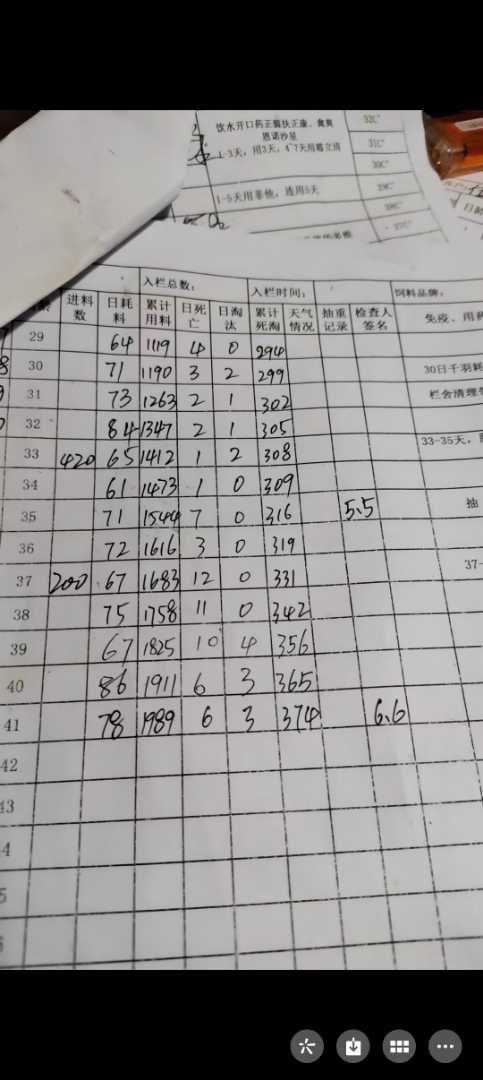 饮水开口药正菌扶正康、禽爽
恩诺沙星
1-3天，用3天，4~7天用霉立清
1-5天用菲他，连用5天
32C°
31C°
30C°
29C°
28C°
27C°
入栏总数： 入栏时间： 饲料品牌：
进料数 日耗料 累计用料 日死亡 日淘汰 累计死淘 天气情况 抽重记录 检查人签名 免疫、用药
29 64 1119 4 0 294
30 71 1190 3 2 299 30日千羽耗
31 73 1263 2 1 302 栏舍清理
32 84 1347 2 1 305
33 420 65 1412 1 2 308 33-35天，
34 61 1473 1 0 309
35 71 1544 7 0 316 5.5 抽
36 72 1616 3 0 319
37 200 67 1683 12 0 331 37-
38 75 1758 11 0 342
39 67 1825 10 4 356
40 86 1911 6 3 365
41 78 1989 6 3 374 6.6
42
43
4
5